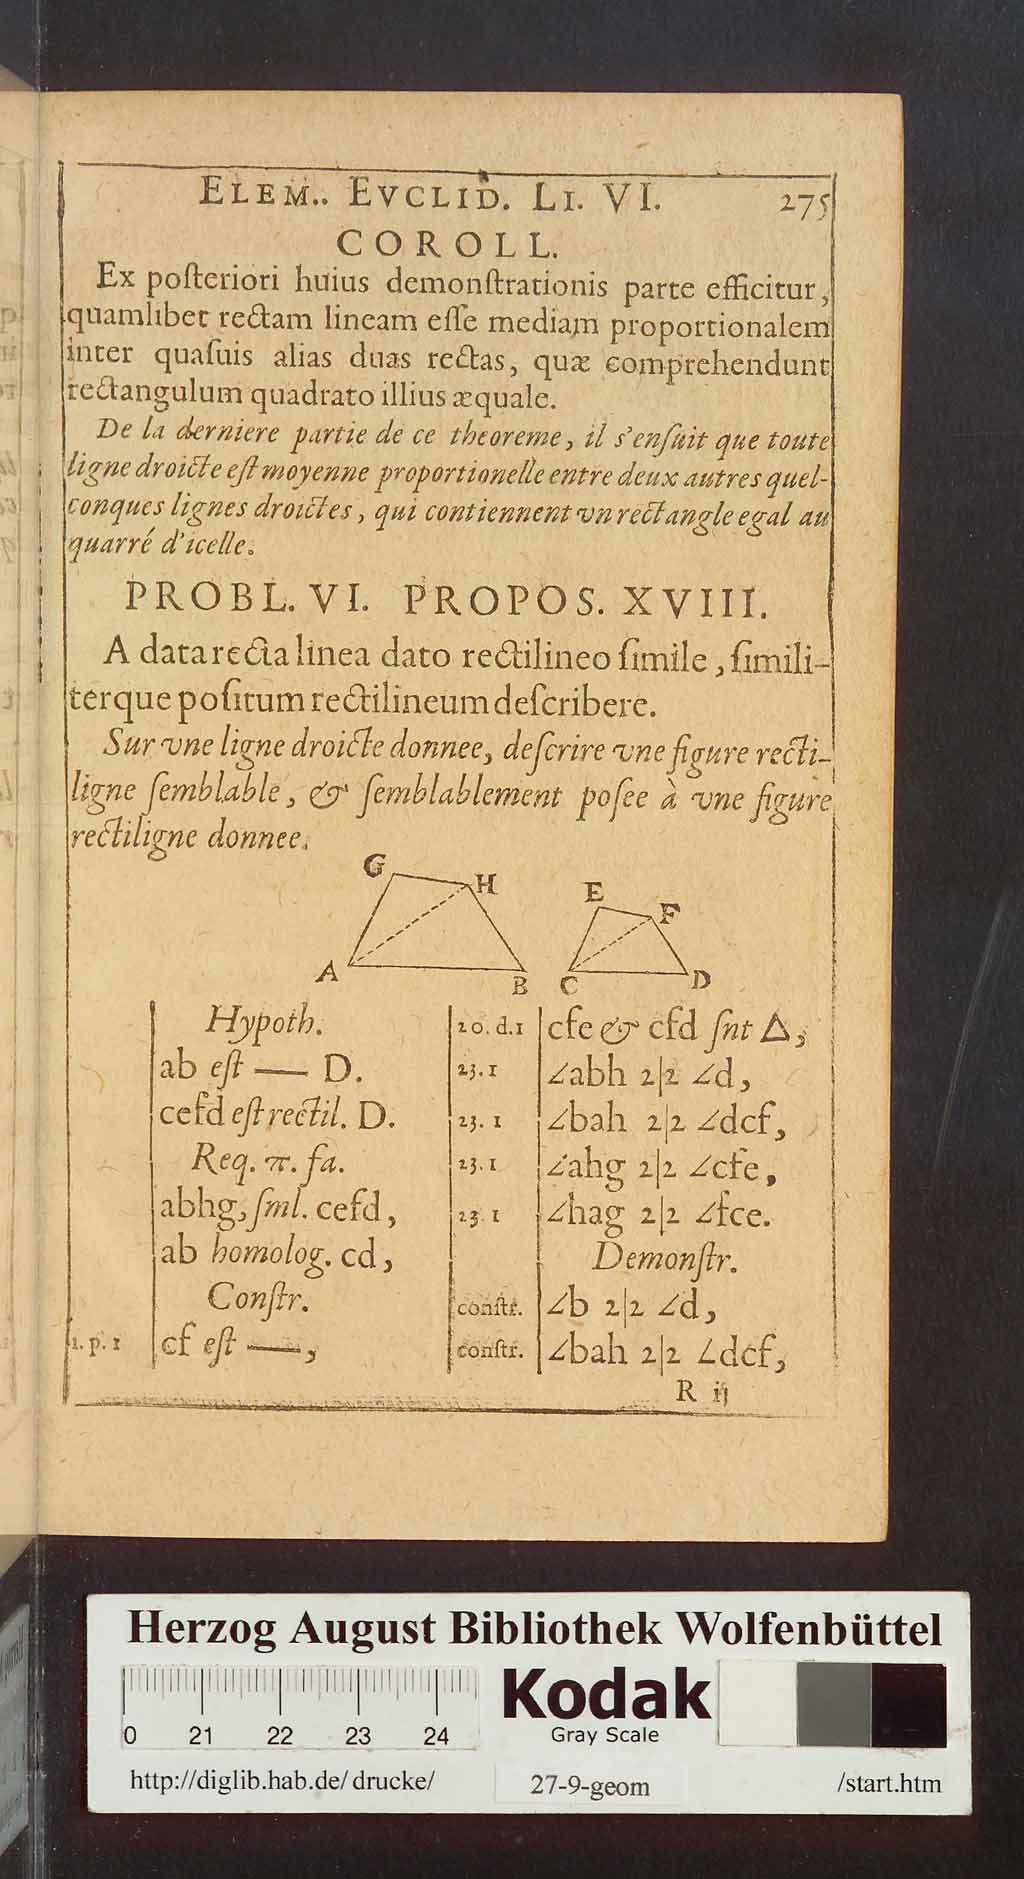 ELEM.. EVCLID. LI. VI. 275
COROLL.
Ex poſteriori huius demonſtrationis parte efficitur,
quamlibet rectam lineam eſſe mediam proportionalem
inter quaſuis alias duas rectas, quæ comprehendunt
rectangulum quadrato illius æquale.
De la derniere partie de ce theoreme, il s'enſuit que toute
ligne droicte eſt moyenne proportionelle entre deux autres quel-
conques lignes droictes, qui contiennent vn rectangle egal au
quarré d'icelle.
PROBL. VI. PROPOS. XVIII.
A data recta linea dato rectilineo ſimile, ſimili-
terque poſitum rectilineum deſcribere.
Sur vne ligne droicte donnee, deſcrire vne figure recti-
ligne ſemblable, & ſemblablement poſee à vne figure
rectiligne donnee.
G
H
E
F
A
B
C
D
Hypoth.
ab eſt — D.
cefd eſt rectil. D.
Req. π. fa.
abhg, ſml. cefd,
ab homolog. cd,
Conſtr.
1. p. 1 cf eſt —,
20. d.1 cfe & cfd ſnt Δ,
23. 1 ∠abh 2|2 ∠d,
23. 1 ∠bah 2|2 ∠dcf,
23. 1 ∠ahg 2|2 ∠cfe,
23. 1 ∠hag 2|2 ∠fce.
Demonſtr.
conſtr. ∠b 2|2 ∠d,
conſtr. ∠bah 2|2 ∠dcf,
R ij
Herzog August Bibliothek Wolfenbüttel
0 21 22 23 24
Kodak
Gray Scale
http://diglib.hab.de/drucke/ 27-9-geom /start.htm